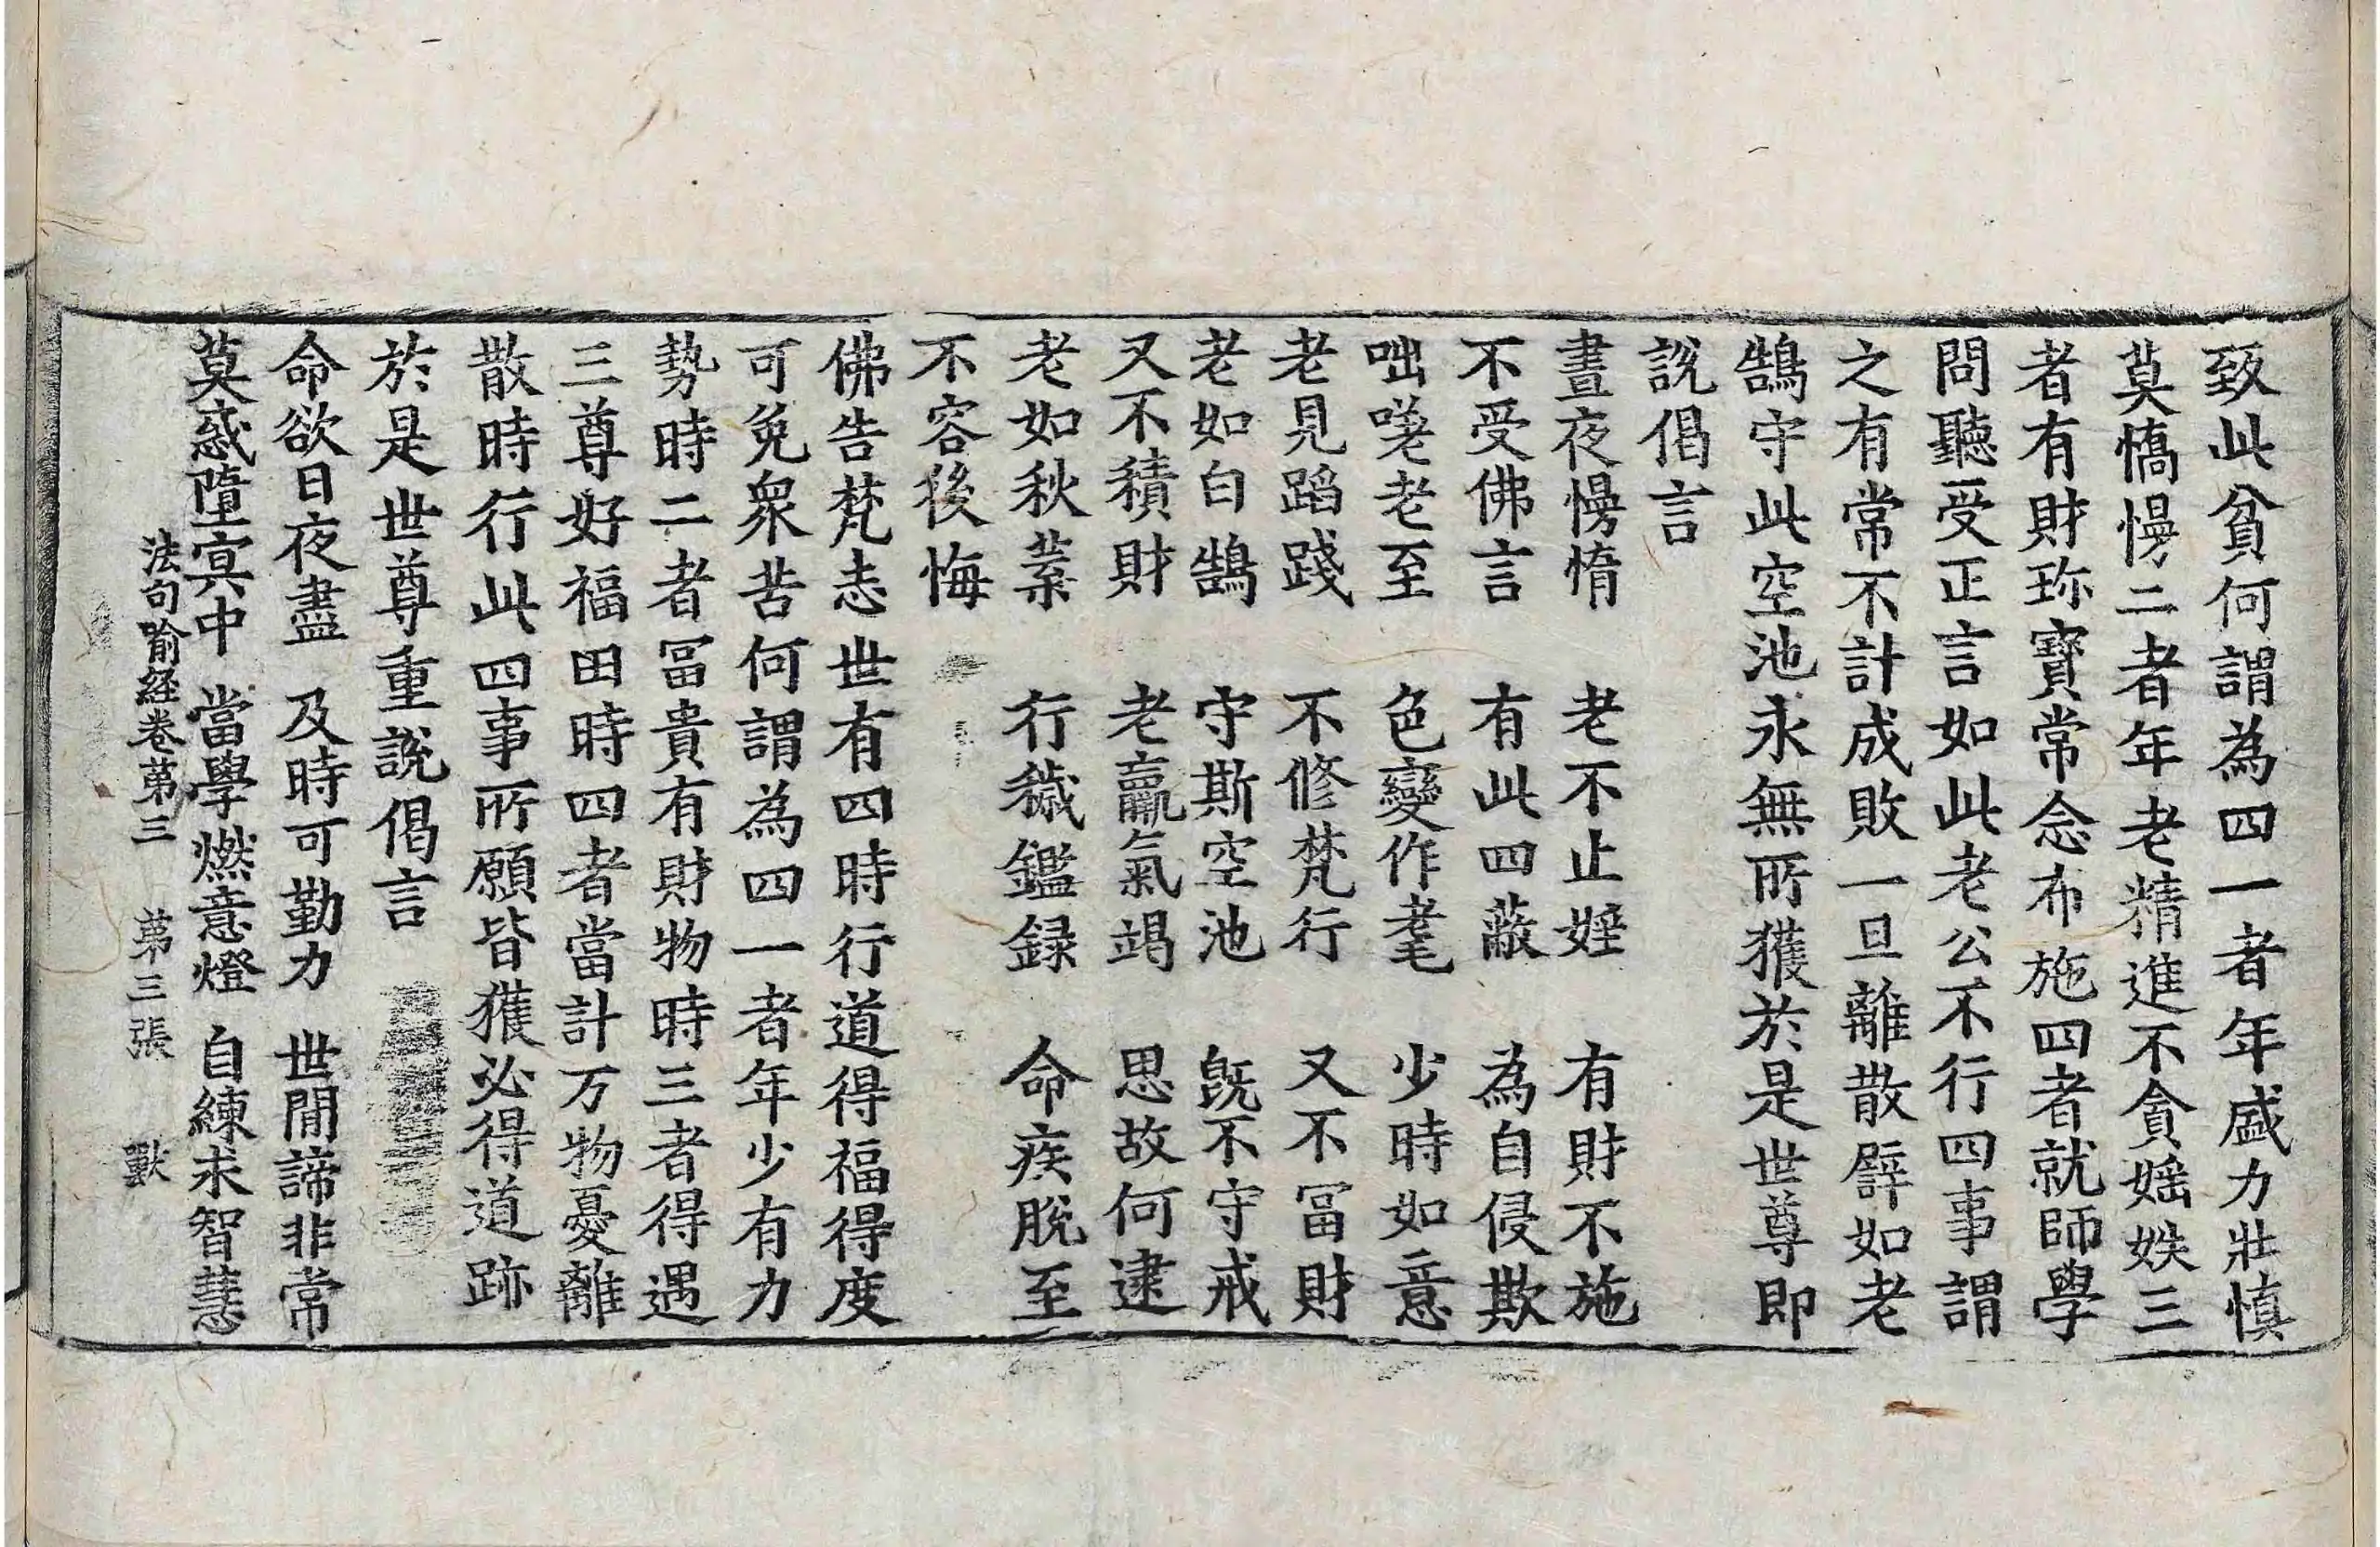 致此貧何謂為四一者年盛力壯慎
莫憍慢二者年老精進不貪婬妷三
者有財珎寶常念布施四者就師學
問聽受正言如此老公不行四事謂
之有常不計成敗一旦離散辟如老
鵠守此空池永無所獲於是世尊即
說偈言
晝夜慢惰　老不止婬　有財不施
不受佛言　有此四蔽　為自侵欺
咄嗟老至　色變作耄　少時如意
老見蹈踐　不修梵行　又不冨財
老如白鵠　守斯空池　既不守戒
又不積財　老羸氣竭　思故何逮
老如秋葉　行穢鑑録　命疾脫至
不容後悔
佛告梵志世有四時行道得福得度
可免衆苦何謂為四一者年少有力
勢時二者冨貴有財物時三者得遇
三尊好福田時四者當計万物憂離
散時行此四事所願皆獲必得道跡
於是世尊重說偈言
命欲日夜盡　及時可勤力　世間諦非常
莫惑墮冥中　當學燃意燈　自練求智慧
法句喻経卷第三　第三張　獸